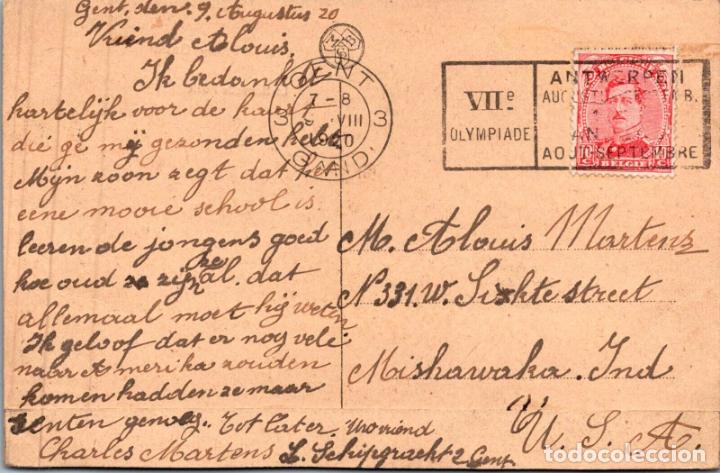 Gent, den 9 Augustus 20
Vriend Alouis.
Ik bedank U
hartelijk voor de kaart
die ge mij gezonden hebt
Mijn zoon zegt dat het
eene mooie school is
leeren de jongens goed
hoe oud ze zijn al. dat
allemaal moet hij weten
Ik geloof dat er nog vele
naar Amerika zouden
komen hadden ze maar
senten genoeg. Tot later. Uw vriend
Charles Martens L. Schipgracht 2 Gent
GENT
3 7-8 3
VIII
20
GAND
VIIe
OLYMPIADE
ANTWERPEN
AOUT-SEPTEMBRE
M. Alouis Martens
N 331. W. Sixhte street
Mishawaka. Ind
U. S. A.
todocoleccion